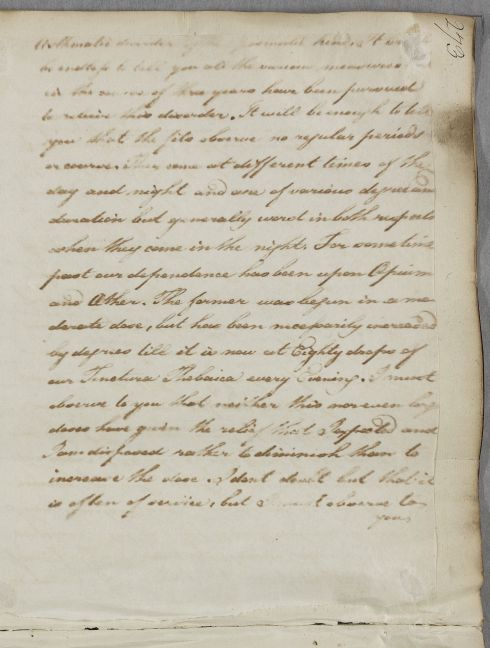 273
Asthmatic disorder of the Spasmodic kind. It would
be endless to tell you all the various measures
in the course of three years have been pursued
to relieve this disorder. It will be enough to tell
you that the fits observe no regular periods
or course. They come at different times of the
day and night and are of various degree and
duration but generally worst in both respects
when they come in the night. For some time
past our dependance has been upon Opium
and Æther. The former was begun in a mo
derate dose, but has been necessarily increased
by degrees till it is now at Eighty drops of
our Tinctura Thebaica every Evening. I must
observe to you that neither this nor even
doses have given the relief that I expected and
I am disposed rather to diminish than to
increase the dose. I dont doubt but that it
is often of service, but I must observe to
you